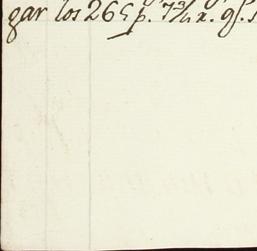 gar los 265 p. 7 3/4 x. q.